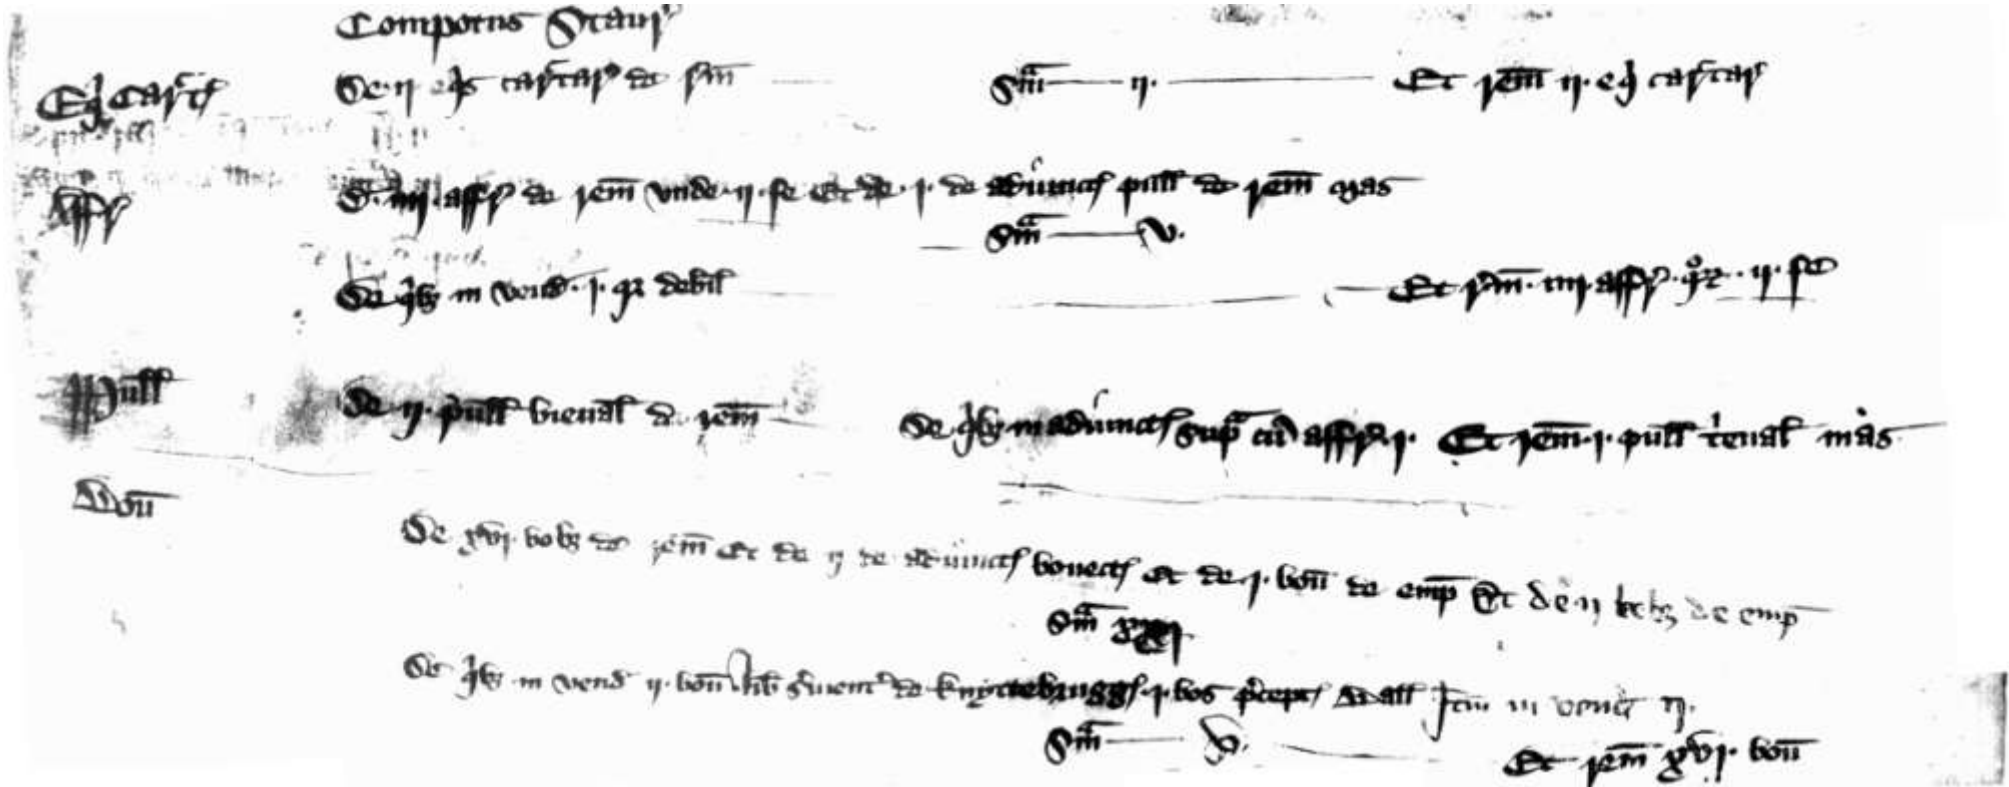 Compotus Staur'
Equ Cart' De ij equis cartar' de rem' Sma ij. Et rem' ij. equ cartar'
Affr' De iiij. affr' de rem' unde ij. fe Et de j. de adiunct' pull' de rem' mas
Sma v.
De quibz in vend' j. qr debil' Et rem' iiij affr' qor' ij. fe
Pull' De ij. pull' bienal' de rem' De quibz in adiunct' supra cu affr' j. Et rem' j. pull' trenal' mas
Bou'
De xvj. bobz de rem' Et de ij de adiunct' bouect' Et de j. bou' de emp' Et de ij bobz de emp'
Sma xxj
De quibz in vend' ij. bou' lib' seruient' de Knyttebrugg' j. bos precept' Ball' Itm in vend' ij.
Sma v.
Et rem' xvj. bou'